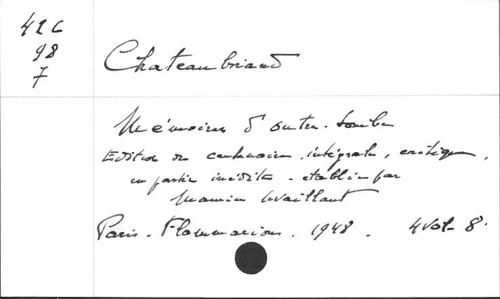 426
98
7
Chateaubriand
Mémoires d'outre-tombe
Edition du centenaire, intégrale, critique,
en partie inédite - établie par
Maurice Levaillant
Paris - Flammarion. 1948. 4 vol. 8°